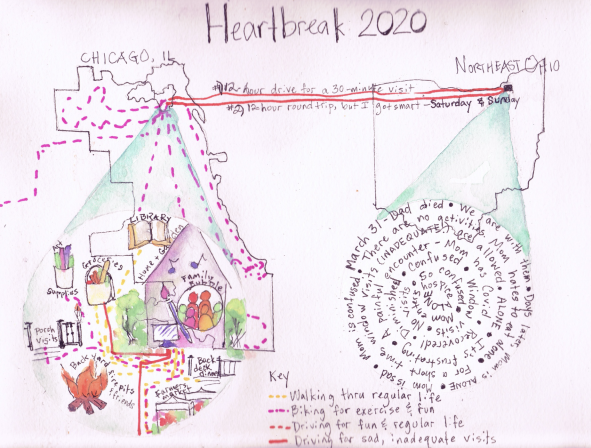 Heartbreak 2020
CHICAGO, IL
NORTHEAST OHIO
#1) 12-hour drive for a 30-minute visit
#2) 12 hour round trip, but I got smart - Saturday & Sunday
LIBRARY
Art
supplies
Groceries
Home + Garden
Family
Bubble
Porch
Visits
Back yard
firepits
friends
Back
deck
dinners
Farmers
market
March 31 - Dad died • We are with them • Days later, Mom is ALONE
Mom is confused • There are no gatherings • Mom hates to eat alone
window visits (INADEQUATE)
allowed • ALONE
A painful encounter - Mom was confused
Mom has Covid
Window visits
So confused
Recovered
It's frustrating
For a short time
Mom is sad
hospice
Key
Walking thru regular life
Biking for exercise & fun
Driving for fun & regular life
Driving for sad, inadequate visits